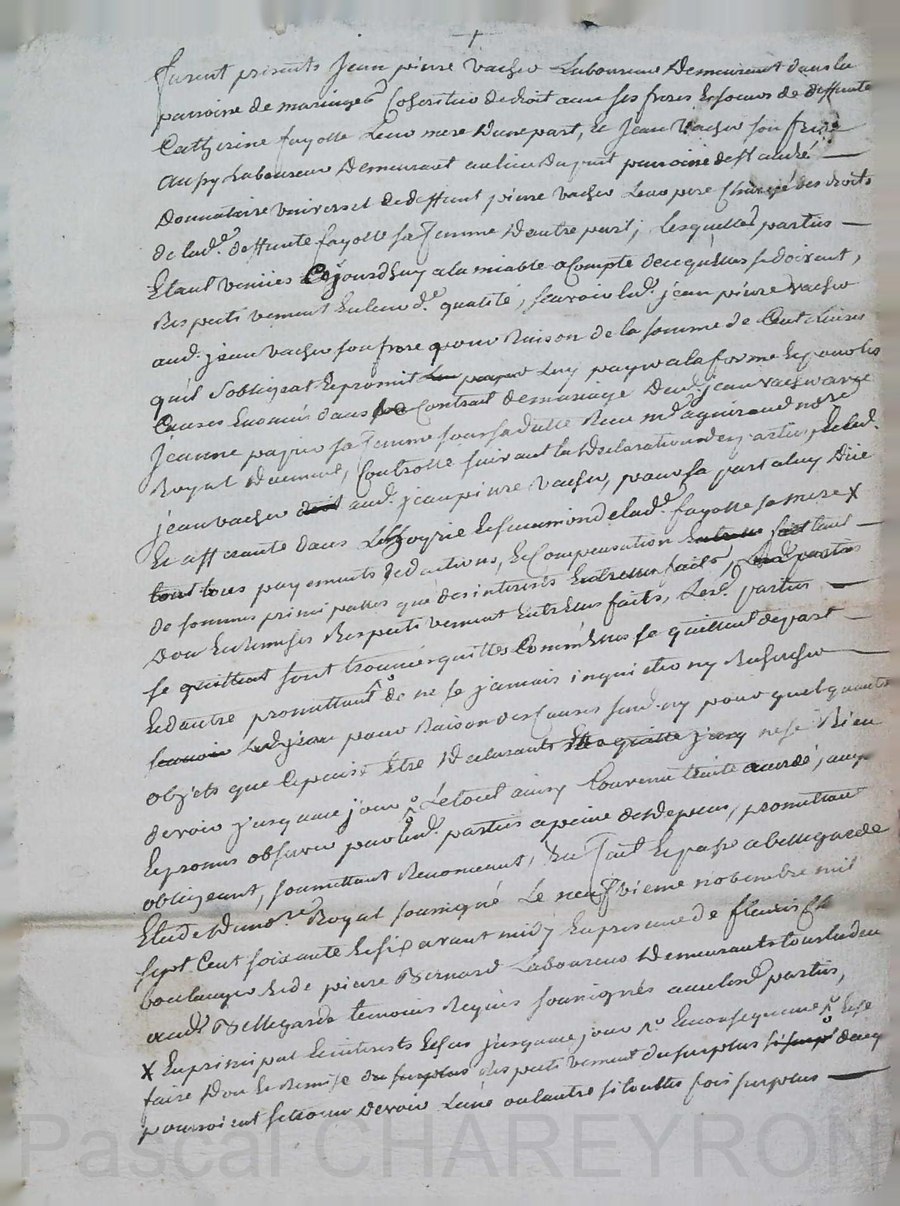 furent presents jean pierre vacher Laboureur Demeurant dans la
parroisse de maringes Coheritier de droit avec ses freres Et soeurs de deffunte
Catherine fayolle Leur mere D'une part, et jean vacher son frere
aussy Laboureur Demeurant au lieu Du parroisse de st andré
Donnataire universel de deffunt pierre vacher Leur pere Chargé des droits
de lade. deffunte fayolle sa femme D'autre part, lesquelles parties
Etant venües Cejourd'huy a la miable a Compte de ce qu'elles se doivent,
Respectivement En leurde. qualité, scavoir led. jean pierre vacher
aud. jean vacher son frere pour Raison de la somme de Cent Livres
qu'il s'obligeat Et promit Luy payer a la forme Et pour les
Causes Enoncés dans Contrat de mariage Dud. jean vacher avec
jeanne sa femme sous sa datte Recu me. notre.
Royal Controllé suivant la Declaration des parties, Et led.
jean vacher aud. jean pierre vacher, pour sa part a luy Düe
Et afferante dans Lade. fayolle sa mere X
tous payements deductions, Et Compensation tant
de sommes principalles que des interests Entrelles faits, Lesd. parties
Don Et Remises Respectivement Entrelles faits, Lesd. parties
se quittent sont trouvées quittes Comm'Elles se quittent de part
Et dautre promettant de ne se jamais inquieter ny Rechercher
scavoir Led. jean pour Raison des Causes susd. ny pour quelqu'autre
objets que ce puisse Etre Declarants ne se Rien
devoir jusqu'a ce jour Le tout ainsy Convenu accordé,
Et promis observer par lesd. parties a peine de Depens, promettant
obligeant, soumettant Renonceant, &a fait Et passé a bellegarde
Etude Du notre. Royal soussigné Le neufvieme novembre mil
sept Cent soixante Et six avant midy En presence de fleury
boulanger Et de pierre Bernard Laboureur Demeurants tous deux
aud. Bellegarde temoins Requis soussignés avec lesd. parties,
X En principal Et interests jusqu'a ce jour Et En consequence
faire Don Et Remise du surplus Respectivement du surplus
pourroient se trouver Devoir L'une ou lautre si touttes fois surplus
Pascal CHAREYRON